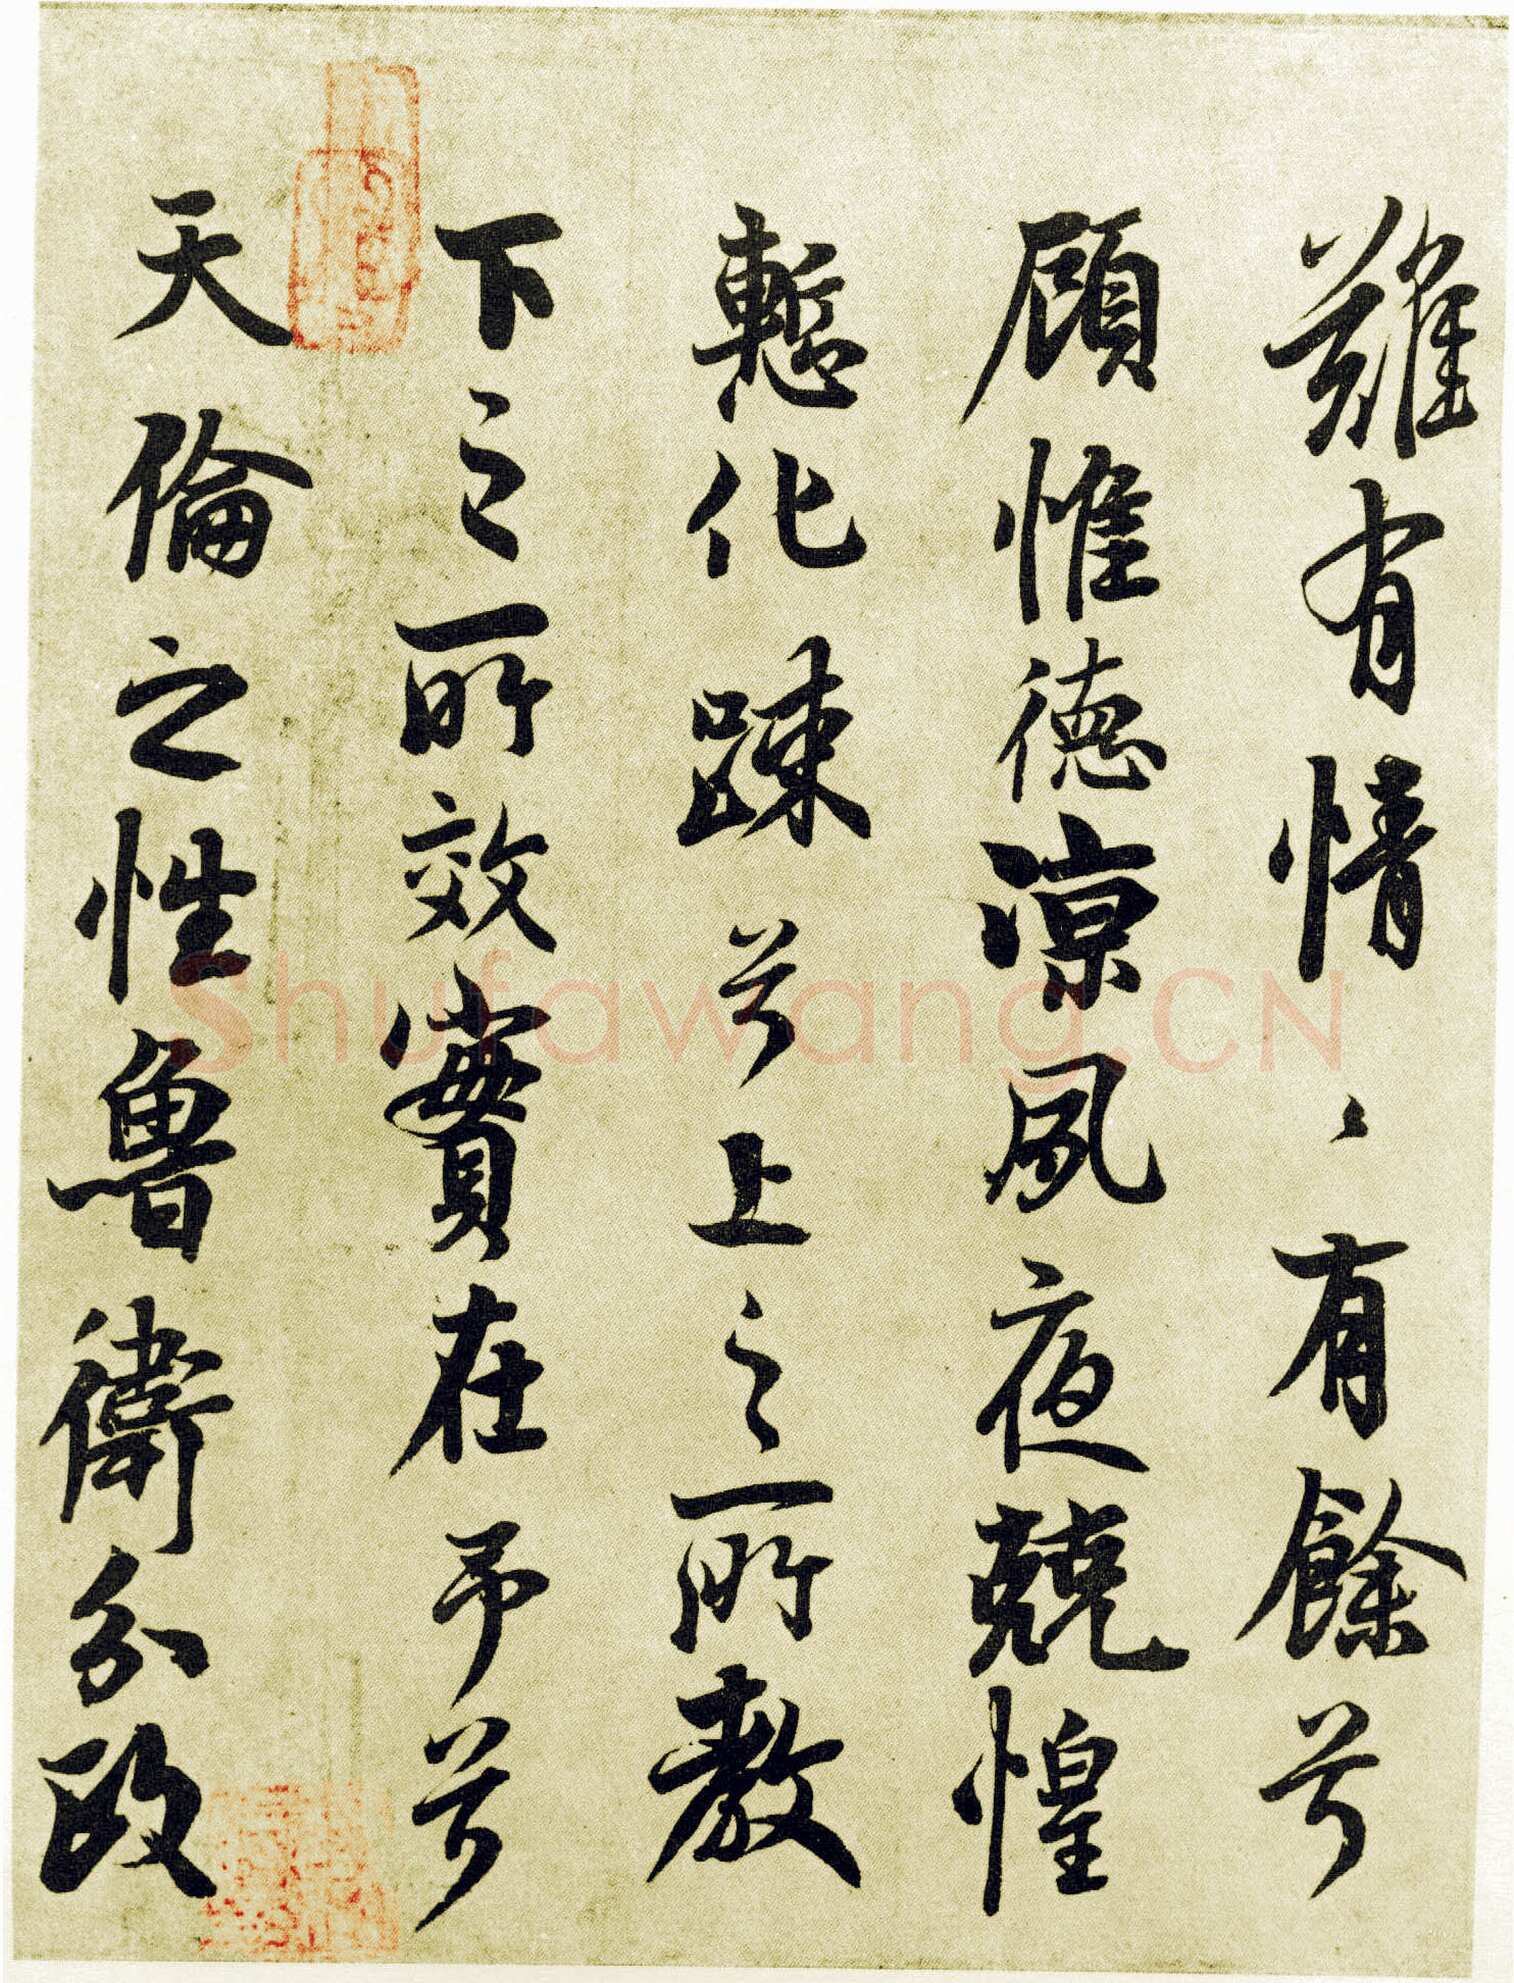 難有情〻有餘兮
顧惟德涼夙夜兢惶
慙化踈兮上之所教
下之所效實在予兮
天倫之性魯衛分政
Shufawang.CN